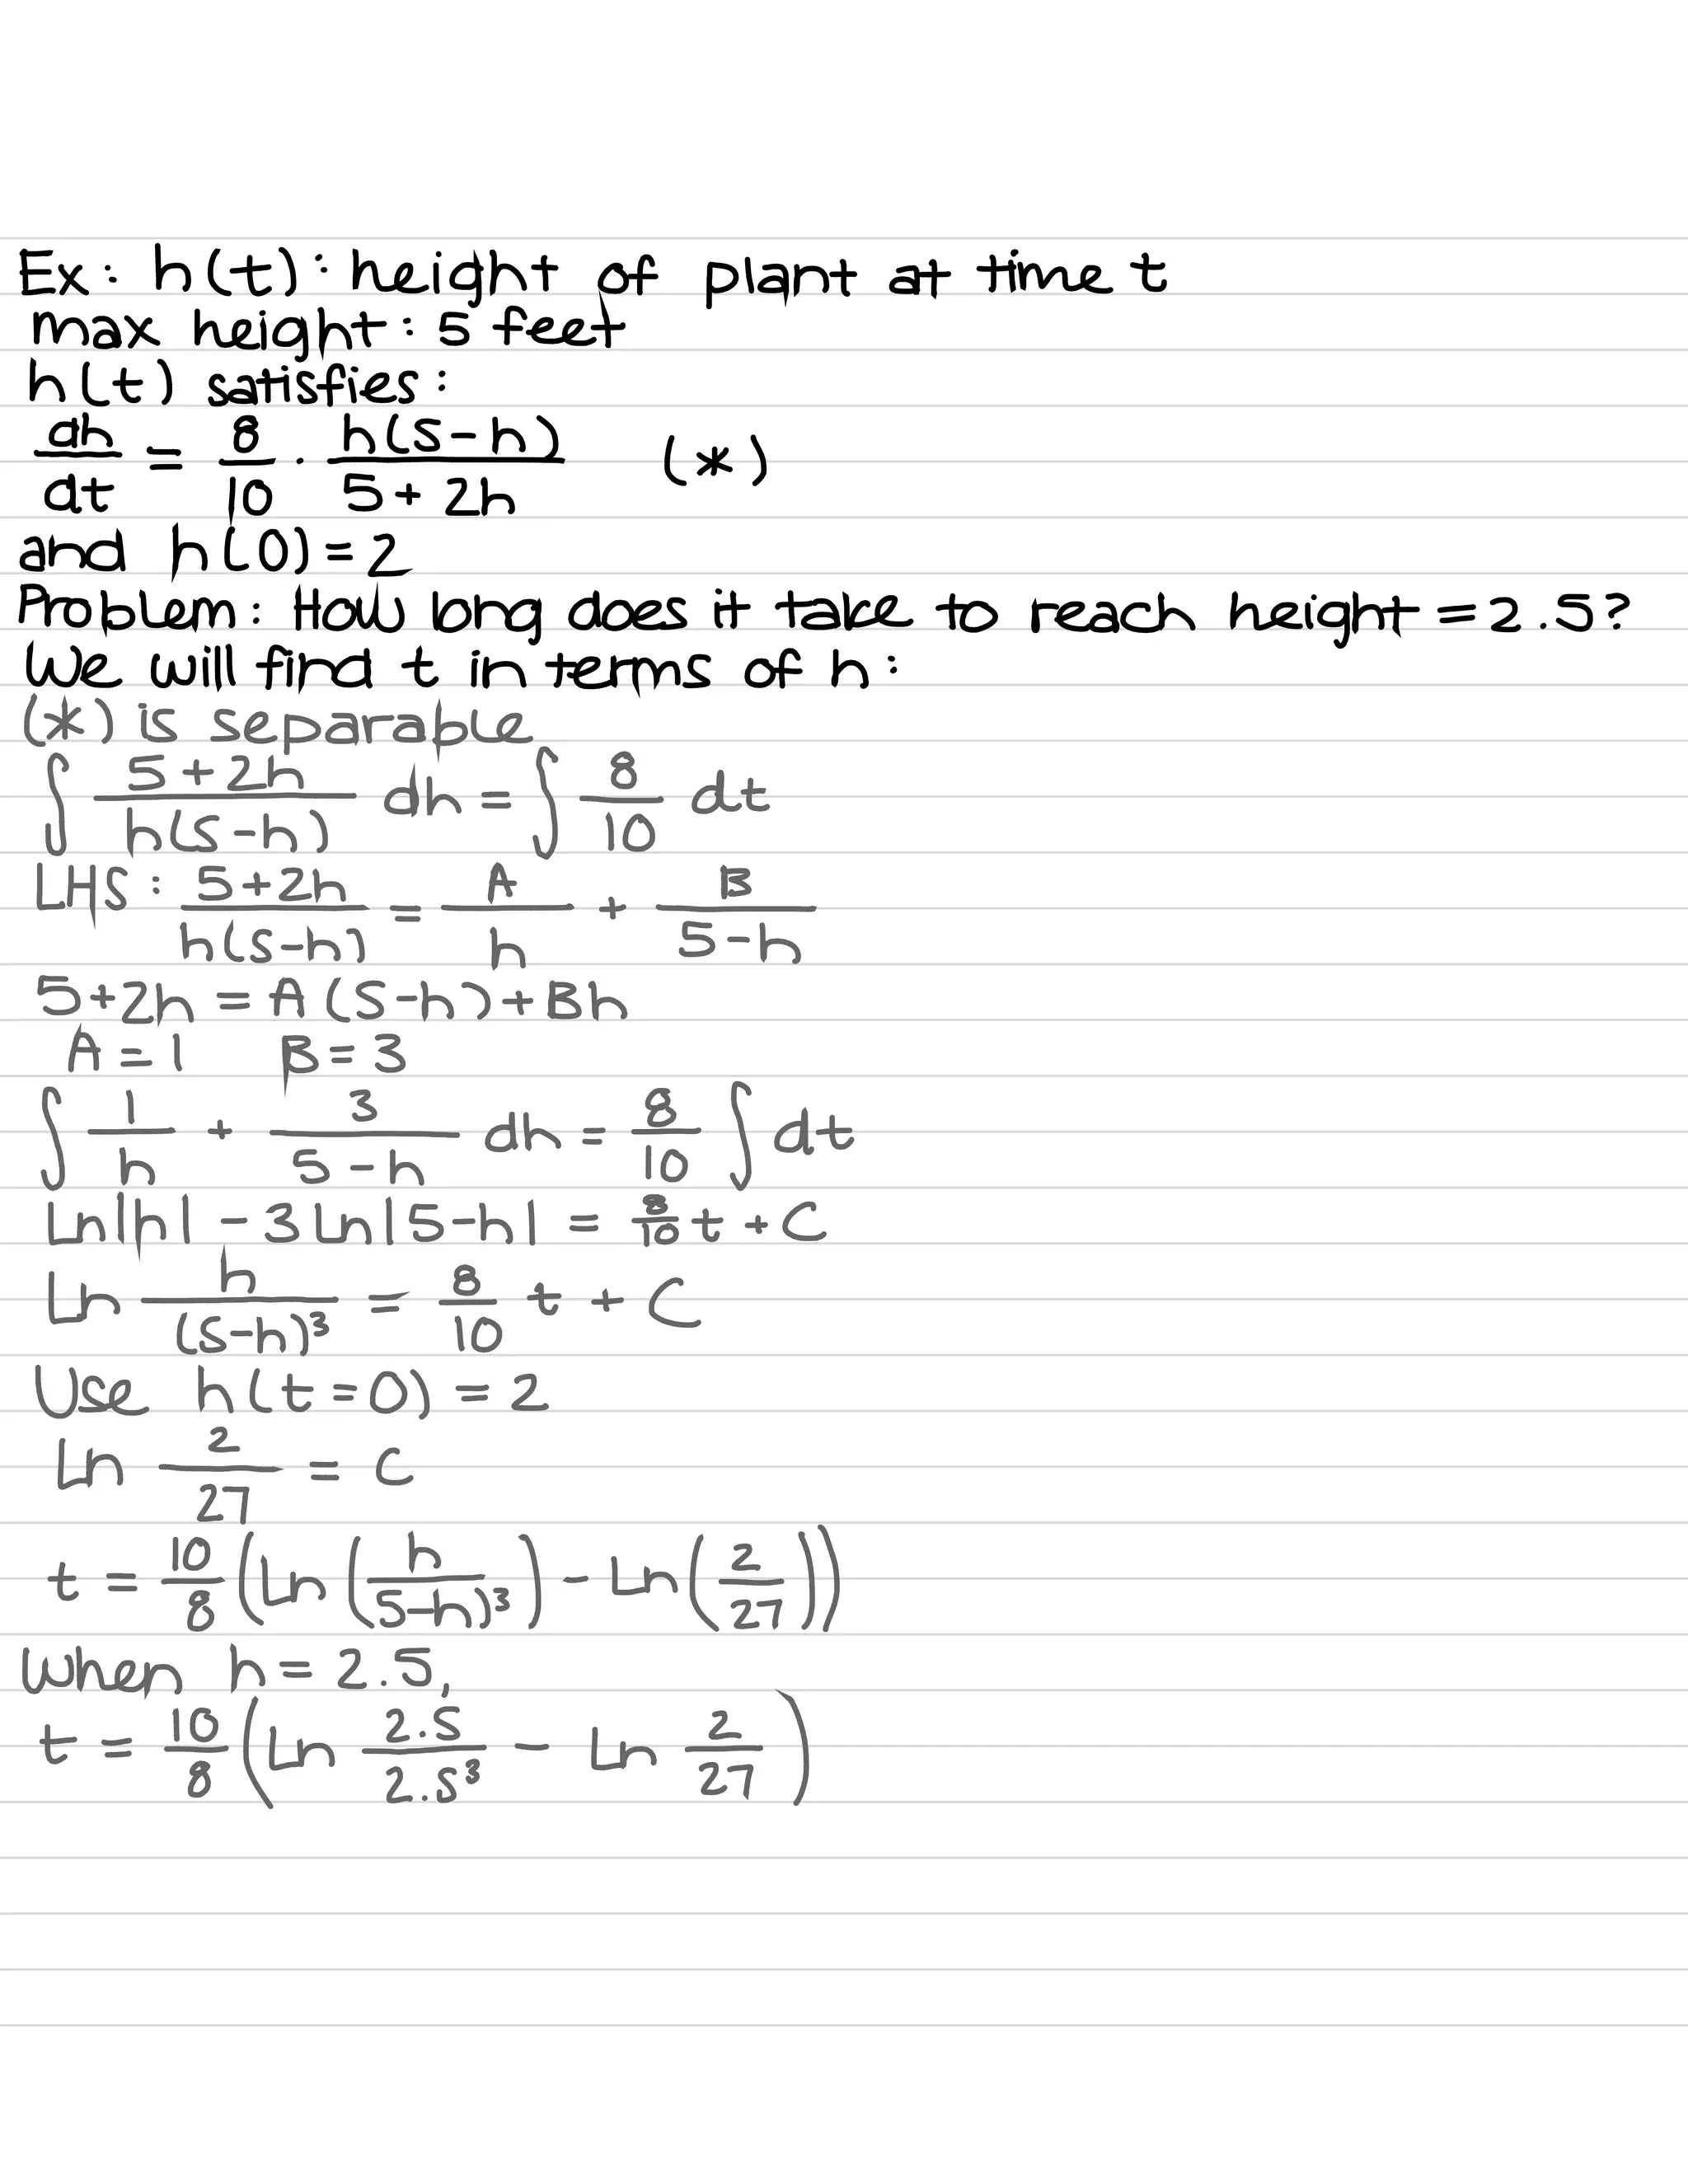 Ex: h(t): height of plant at time t
max height: 5 feet
h(t) satisfies:
dh/dt = 8/10 · h(5-h)/(5+2h) (*)
and h(0)=2
Problem: How long does it take to reach height=2.5?
We will find t in terms of h:
(*) is separable
∫ (5+2h)/(h(5-h)) dh = ∫ 8/10 dt
LHS: (5+2h)/(h(5-h)) = A/h + B/(5-h)
5+2h = A(5-h)+Bh
A=1 B=3
∫ 1/h + 3/(5-h) dh = 8/10 ∫ dt
Ln|h| - 3Ln|5-h| = 8/10 t + C
Ln h/(5-h)³ = 8/10 t + C
Use h(t=0) = 2
Ln 2/27 = C
t = 10/8 (Ln (h/(5-h)³) - Ln (2/27))
when h=2.5,
t = 10/8 (Ln 2.5/2.5³ - Ln 2/27)